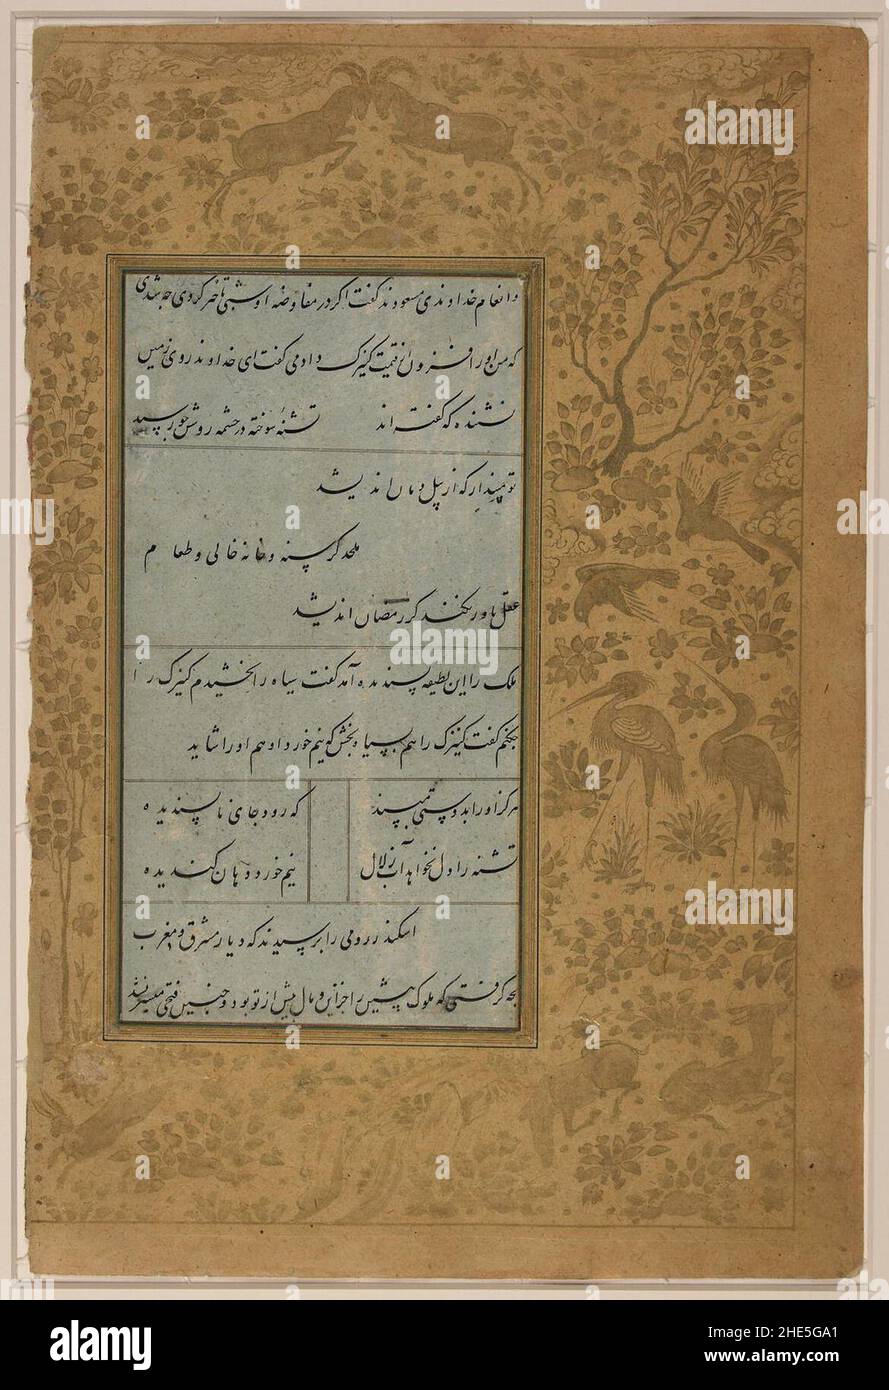 وانعام خداوندی مسعودند گفت اگر در مفاوضه او شبی تاخیر کردی چه شدی
که من او را افزون از قیمت کنیزک دادمی گفت ای خداوند روی زمین
نشنیده که گفته اند تشنه سوخته در چشمه روشن چو رسید
تو مپندار که از پیل دمان اندیشد
ملحد گرسنه و خانه خالی و طعام
عقل باور نکند کز رمضان اندیشد
ملک را این لطیفه پسندیده آمد گفت سیاه را بخشیدم کنیزک را
چکنم گفت کنیزک را هم بسیاه بخش که نیم خورد او هم او را شاید
هرگز او را بدوستی مپسند که رود جای ناپسندیده
تشنه را دل نخواهد آب زلال نیم خورد دهان گندیده
اسکندر رومی را پرسیدند که دیار مشرق و مغرب
بچه گرفتی که ملوک پیشین را خزاین و مال بیش از تو بود و چنین فتحی میسر نشد
alamy
alamy
alamy
Image ID: 2HE5GA1
www.alamy.com